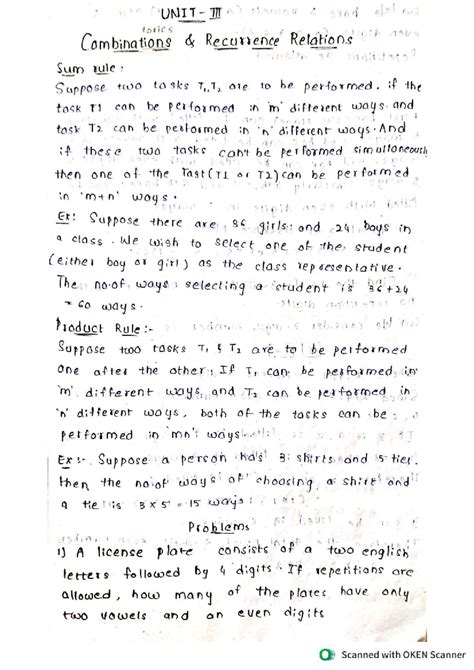 UNIT-III
torics
Combinations & Recurrence Relations
Sum rule :
Suppose two tasks T1, T2 are to be performed, if the
task T1 can be performed in 'm' different ways and
task T2 can be performed in 'n' different ways. And
if these two tasks can't be performed simultaneously
then one of the Tast (T1 or T2) can be performed
in 'm+n' ways.
Ex: Suppose there are 36 girls and 24 boys in
a class. We wish to select one of the student
(either boy or girl) as the class representative.
The no.of ways selecting a student is 36+24
= 60 ways.
Product Rule :-
Suppose two tasks T1 & T2 are to be performed
one after the other. If T1 can be performed in
'm' different ways and T2 can be performed in
'n' different ways, both of the tasks can be
performed in 'mn' ways
Ex :- Suppose a person has 3 shirts and 5 ties.
then the no.of ways of choosing a shirt and
a tie is 3x5 = 15 ways.
Problems
1) A license plate consists of a two english
letters followed by 4 digits. If repetitions are
allowed, how many of the plates have only
two vowels and an even digits
Scanned with OKEN Scanner